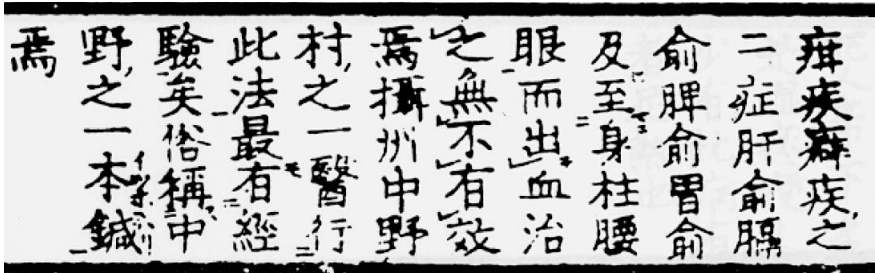 疳疾癖疾之
二症肝俞膈
俞脾俞胃俞
及至身柱腰
眼而出血治
之無不有效
焉攝州中野
村之一醫行
此法最有經
驗矣俗稱中
野之一本鍼
焉